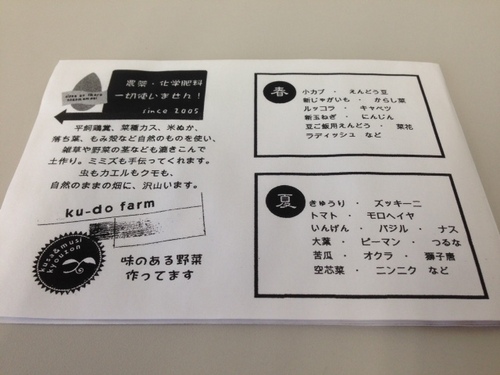 農薬・化学肥料
一切使いません!
since 2005
平飼鶏糞、菜種カス、米ぬか、
落ち葉、もみ殻など自然のものを使い、
雑草や野菜の茎なども漉きこんで
土作り。ミミズも手伝ってくれます。
虫もカエルもクモも、
自然のままの畑に、沢山います。
ku-do farm
kusa&musi
kyouzon
味のある野菜
作ってます
春
小カブ ・ えんどう豆
新じゃがいも ・ からし菜
ルッコラ ・ キャベツ
新玉ねぎ ・ にんじん
豆ご飯用えんどう ・ 菜花
ラディッシュ など
夏
きゅうり ・ ズッキーニ
トマト ・ モロヘイヤ
いんげん ・ バジル ・ ナス
大葉 ・ ピーマン ・ つるな
苦瓜 ・ オクラ ・ 獅子唐
空芯菜 ・ ニンニク など